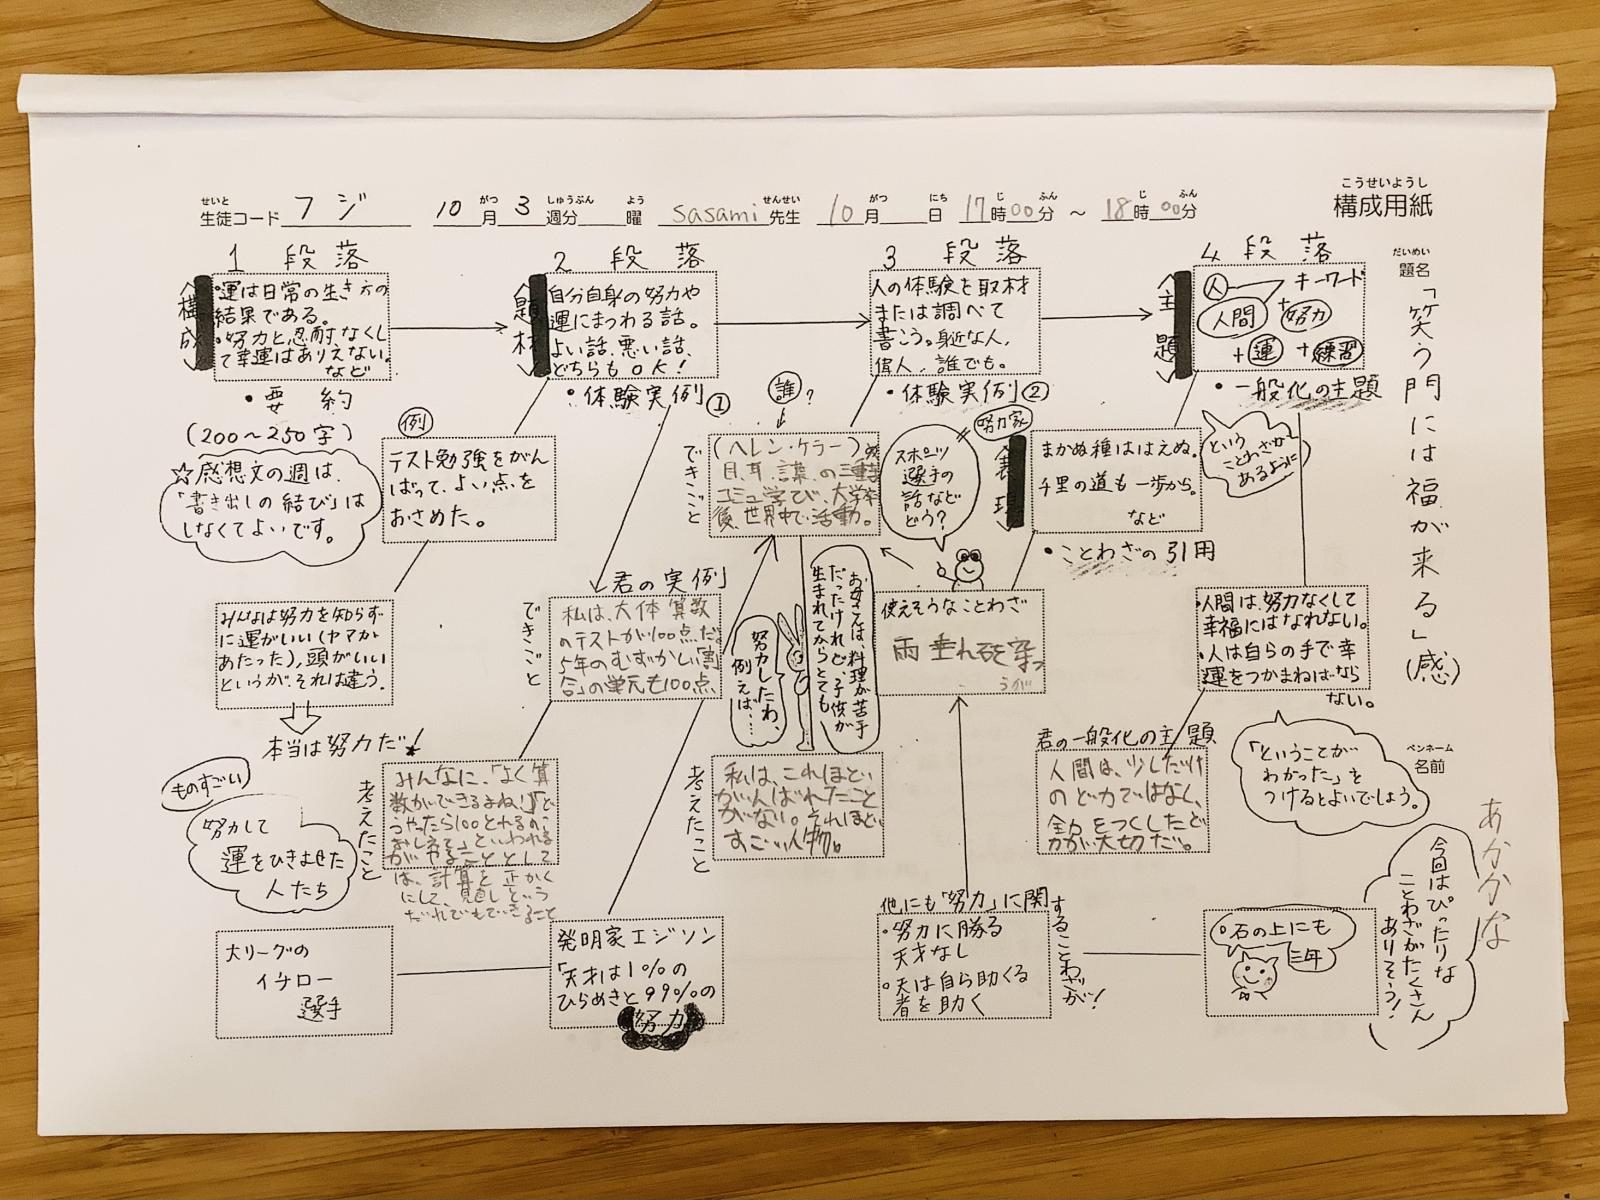 こうせいようし
構成用紙
せいと
生徒コード フジ
がつ しゅうぶん よう
10月 3週分 曜
せんせい
sasami 先生
がつ にち じ ふん じ ふん
10月 日 17時00分 ～ 18時00分
だいめい
題名
「笑う門には福が来る」(感)
ペンネーム
名前
あかかな
1 段落
〈構成〉
・運は日常の生き方の
結果である。
・努力と忍耐なくし
て幸運はありえない。
など
・要約
(200～250字)
☆感想文の週は、
「書き出しの結び」は
しなくてよいです。
みんなは努力を知らず
に運がいい(ヤマが
あたった)、頭がいい
というが、それは違う。
本当は努力だ!
ものすごい
努力して
運をひきよせた
人たち
大リーグの
イチロー
選手
2 段落
〈題材〉
自分自身の努力や
運にまつわる話。
よい話、悪い話、
どちらもOK!
・体験実例①
例
テスト勉強をがん
ばって、よい点を
おさめた。
君の実例」
できごと
私は、大体算数
のテストが100点だ。
5年のむずかしい「割
合」の単元も100点
考えたこと
みんなに、「よく算
数ができるよね!」「ど
うやったら100とれるの、
おしえて」といわれる
がやることとして
は、計算を正かく
にして、見直しという
だれでもできること
発明家エジソン
「天才は1%の
ひらめきと99%の
努力
3 段落
人の体験を取材
または調べて
書こう。身近な人、
偉人、誰でも。
・体験実例②
誰?
できごと
(ヘレン・ケラー)
目、耳、言葉、の三重
コミュ学び、大学卒
後、世界中で活動。
スポーツ
選手の
話など
どう?
努力家
お母さんは、料理が苦手
だったけれど、子供が
生まれてからとても
努力したわ、
例えば…
考えたこと
私は、これほど
がんばれたこと
がない。それほど
すごい人物。
使えそうなことわざ
雨垂れ石を穿つ
うが
他にも「努力」に関
することわざが!
・努力に勝る
天才なし
・天は自ら助くる
者を助く
4 段落
〈主題〉
人 キーワード
人間 + 努力
+ 運 + 練習
・一般化の主題
〈表現〉
まかぬ種ははえぬ。
千里の道も一歩から。
など
・ことわざの引用
という
ことわざが
あるように
・人間は、努力なくして
幸福にはなれない。
・人は自らの手で幸
運をつかまねばなら
ない。
君の一般化の主題
人間は、少しだけ
のど力ではなく、
全力をつくしたど
力が大切だ。
「ということが
わかった」を
つけるとよいでしょう。
石の上にも
三年
今回はぴったりな
ことわざがたくさん
ありそう!